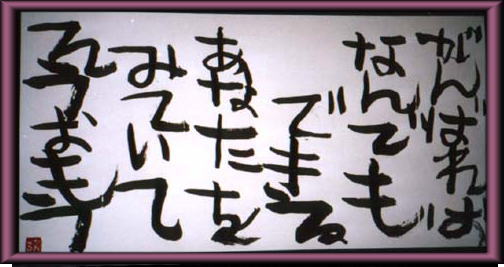 がんばれば
なんでも
できる
あなたを
みていて
そうおもう